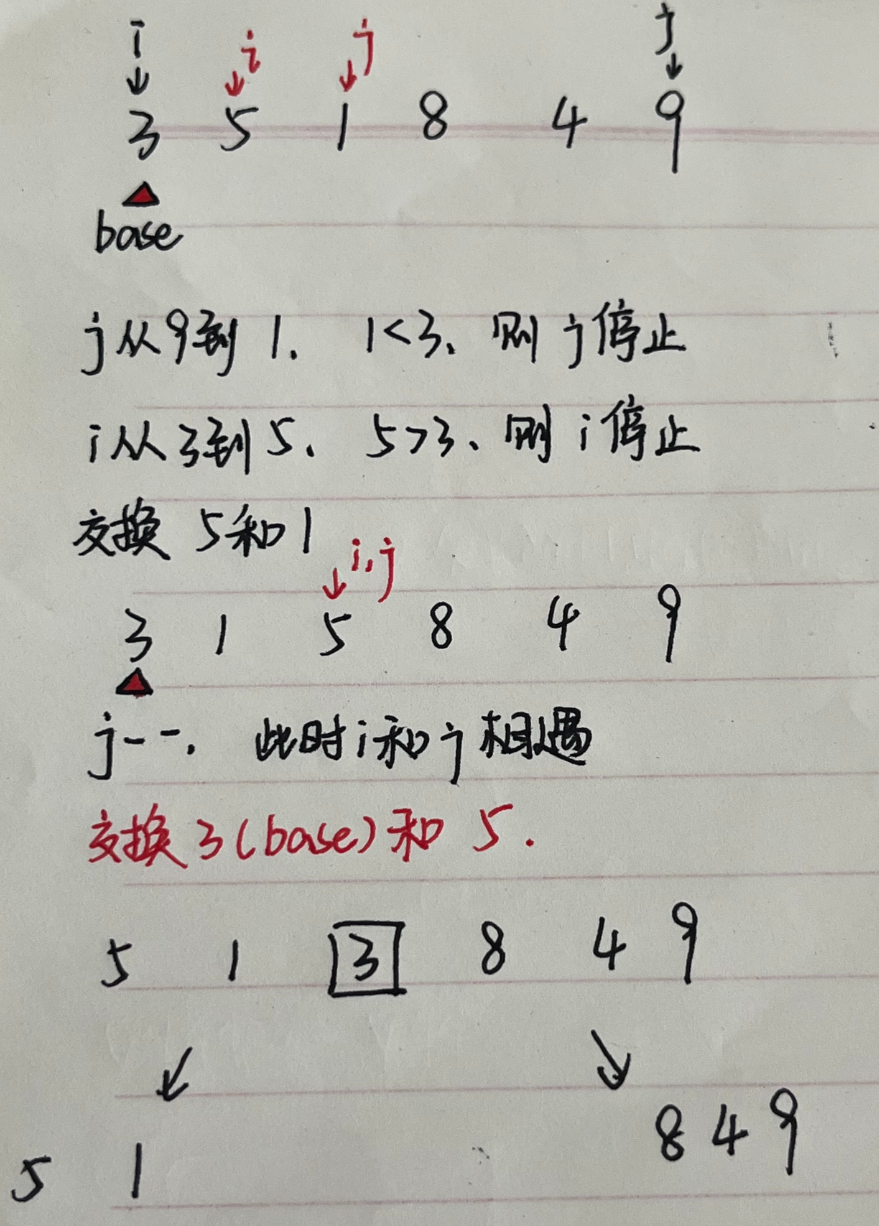 i i j j
3 5 1 8 4 9
base
j从9到1. 1<3、则j停止
i从3到5、5>3、则i停止
交换 5和1
i,j
3 1 5 8 4 9
j--. 此时i和j相遇
交换3(base)和 5.
5 1 3 8 4 9
8 4 9
5 1